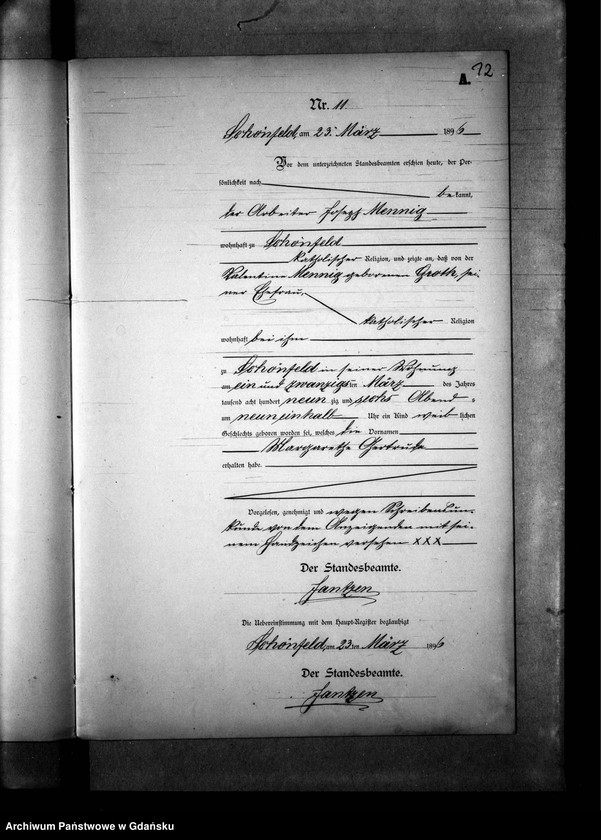 12
A.
Nr. 11
Schönfeld, am 23. März 1896
Vor dem unterzeichneten Standesbeamten erschien heute, der Per-
sönlichkeit nach
bekannt,
der Arbeiter Joseph Mennig
wohnhaft zu Schönfeld
katholischer Religion, und zeigte an, daß von der
Valentine Mennig geborenen Groth, sei-
ner Ehefrau,
katholischer Religion
wohnhaft bei ihm
zu Schönfeld in seiner Wohnung
am ein und zwanzigsten März des Jahres
tausend acht hundert neunzig und sechs Abends
um neuneinhalb Uhr ein Kind weiblichen
Geschlechts geboren worden sei, welches die Vornamen
Margarethe Gertrude
erhalten habe.
Vorgelesen, genehmigt und wegen Schreibensun-
kunde von dem Anzeigenden mit sei-
nem Handzeichen versehen XXX
Der Standesbeamte.
Jantzen
Die Uebereinstimmung mit dem Haupt-Register beglaubigt
Schönfeld, am 23ten März 1896
Der Standesbeamte.
Jantzen
Archiwum Państwowe w Gdańsku